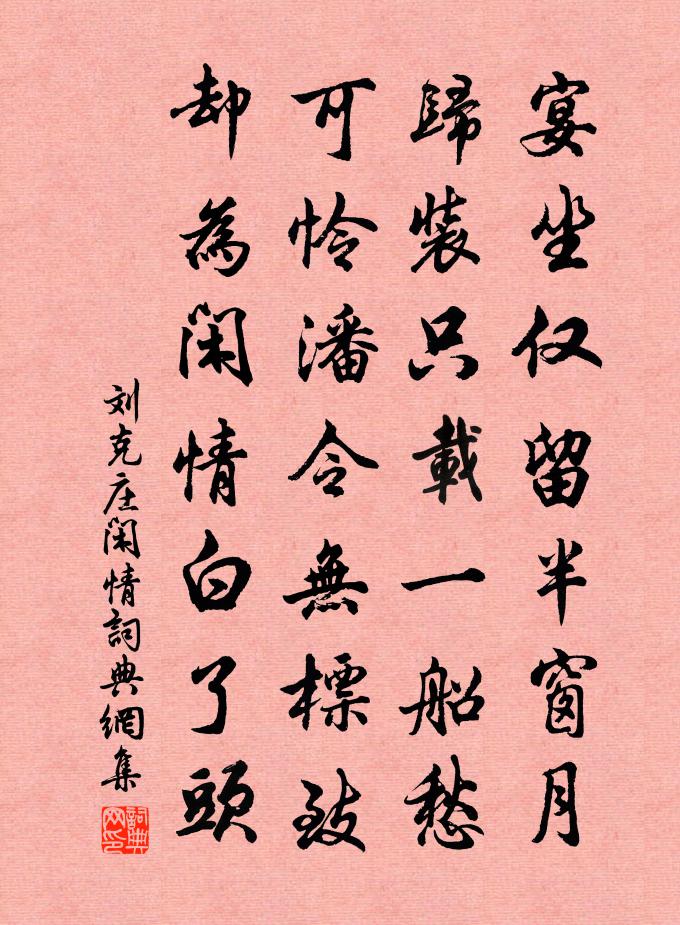 宴坐仅留半窗月
歸裝只載一船愁
可怜潘令無標致
却為闲情白了頭
刘克庄闲情詞典網集
詞典网印